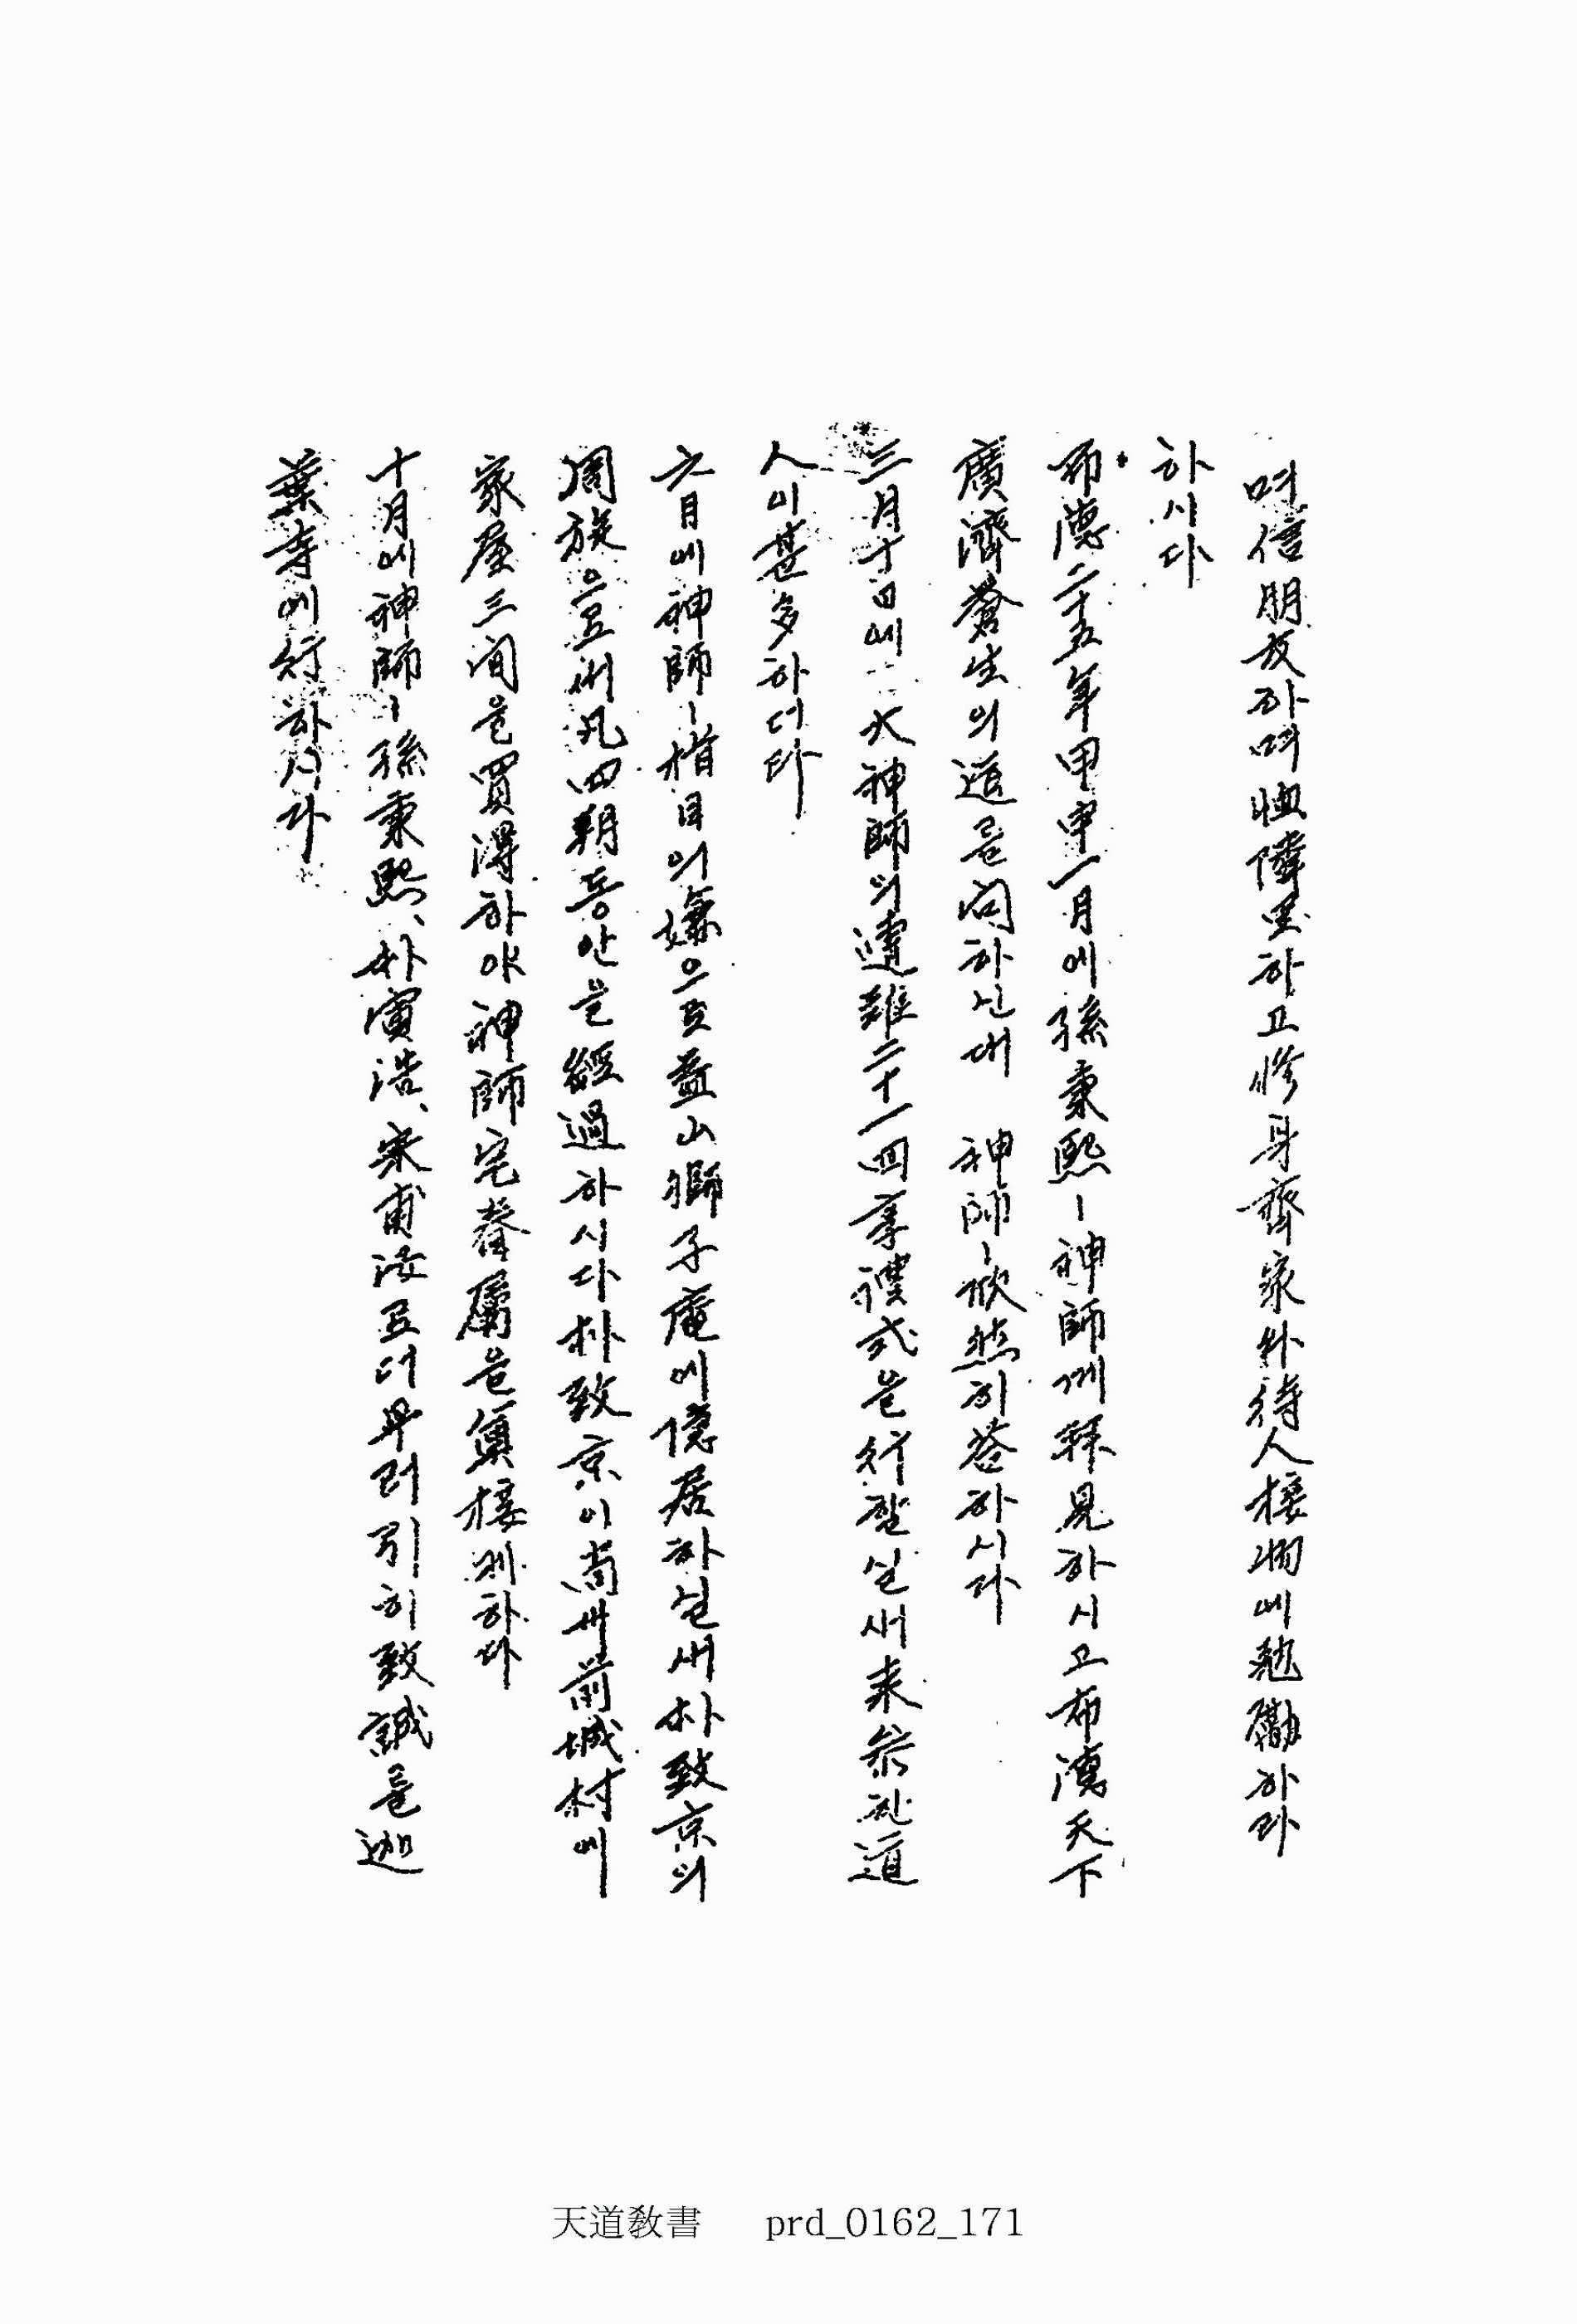 며信朋友하며恤隣里하고修身齊家外待人接物에勉勵하라
하시다
布德二十五年甲申一月에孫秉熙ㅣ神師께拜見하시고布德天下
廣濟蒼生의道를問하신대 神師ㅣ欣然히答하시다
三月十日에 大神師의遭難二十一回享禮式을行할실새来參한道
人이甚多하더라
六月에神師ㅣ指目의嫌으로益山獅子庵에隱居하실새朴致京의
周旋으로써凡四朔동안을經過하시다朴致京이尙州前城村에
家屋三間을買得하야神師宅眷属을奠接케하다
十月에神師ㅣ孫秉熙、朴寅浩、宋甫汝로더부러引히致誠을迦
葉寺에行하시다
天道敎書 prd_0162_171